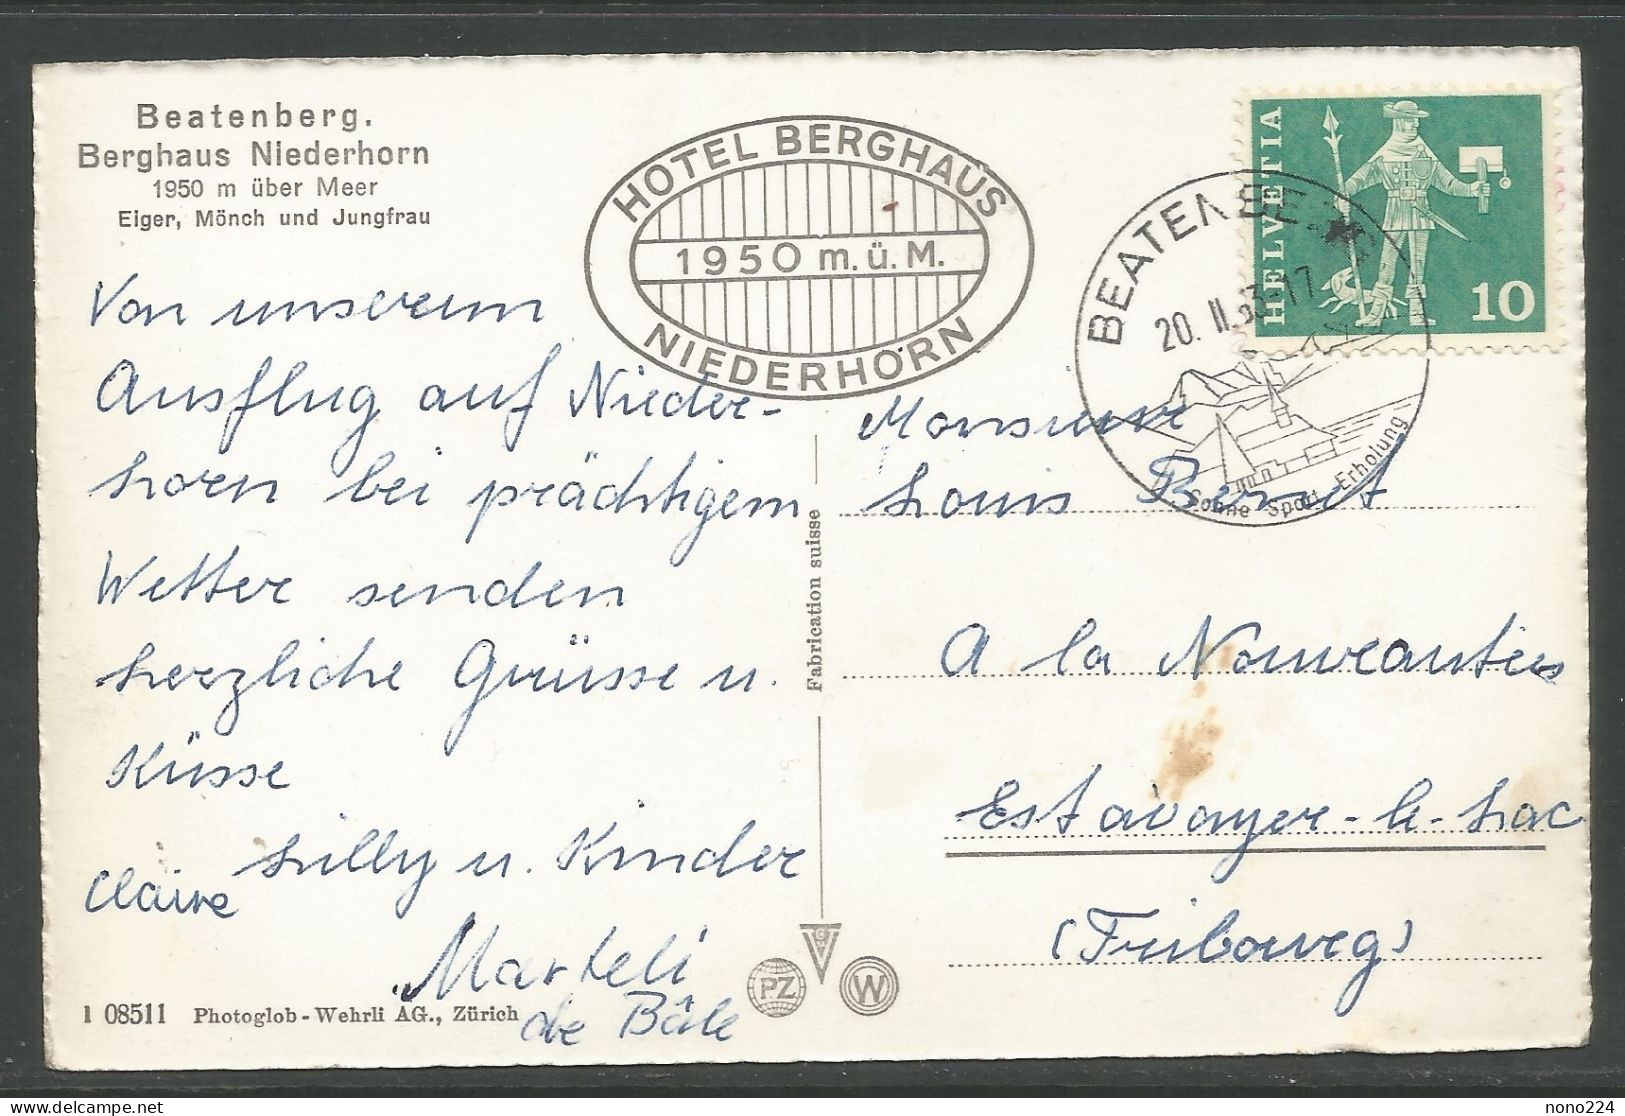 Beatenberg.
Berghaus Niederhorn
1950 m über Meer
Eiger, Mönch und Jungfrau
HOTEL BERGHAUS
1950 m.ü.M.
NIEDERHORN
HELVETIA
10
20. II. 63-17
Sonne Sport Erholung
Von unserem
Ausflug auf Nieder-
horn bei prächtigem
Wetter senden
herzliche Grüsse u.
Küsse
Lilly u. Kinder
Claire
Marteli
de Bâle
Monsieur
Louis Bernet
A la Nouveautées
Estavayer-le-Lac
(Fribourg)
Fabrication suisse
PZ
W
1 08511 Photoglob-Wehrli AG., Zürich
delcampe.net
nono224